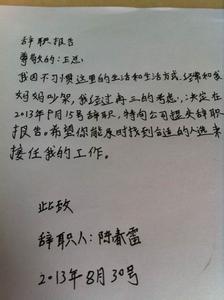 辞职报告
尊敬的:上思
我因不习惯这里的生活和生活方式.经常和我
妈妈吵架,我经过再三的考虑.决定在
2013年9月15号辞职.特向公司提失辞职
报告。希望你能及时找到合适的人选来
接任我的工作。
此致
辞职人:陈春雷
2013年8月30号